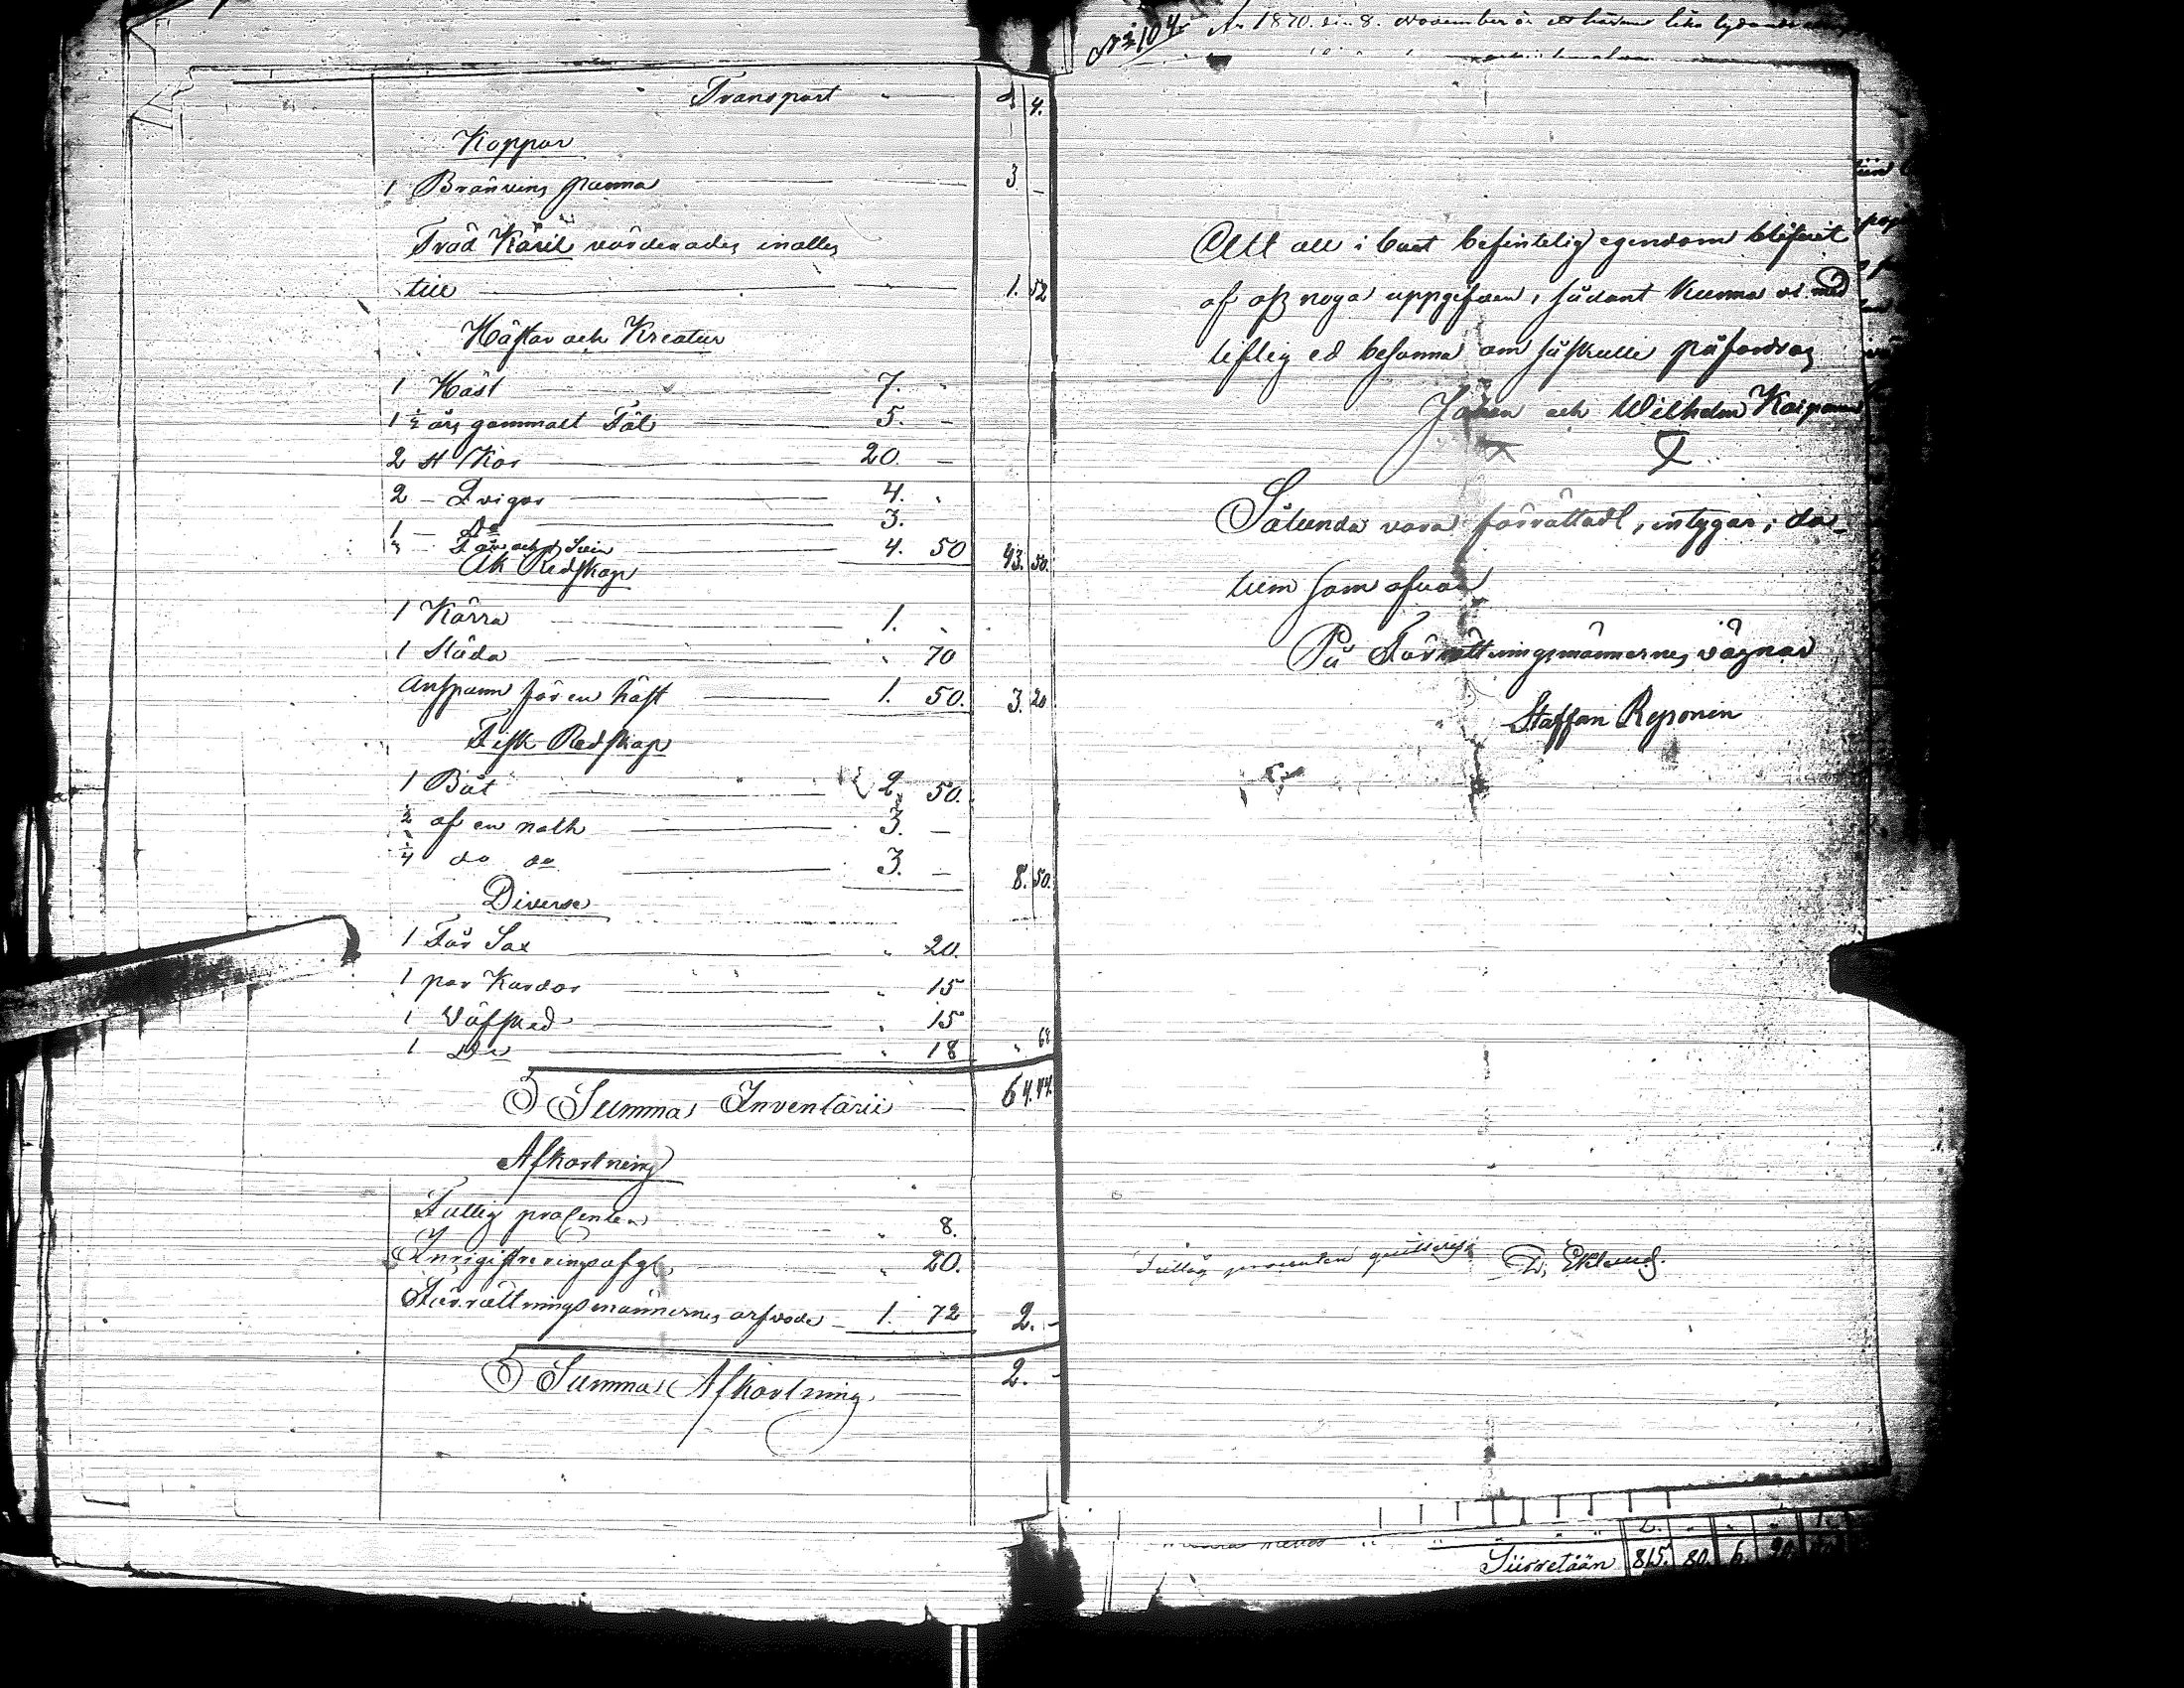 Transport " 4.
Koppar
1 Bränvins panna 3 -
Träd Käril värderades inalles
till 1. 52
Hästar och Kreatur
1 Häst 7. "
1 ½ års gammalt Föl 5. -
2 st Kor 20. -
2 - Qvigor 4. "
1 - Do 3.
Får och Svin 4. 50 43. 50.
Åk Redskap
1 Kärra 1. "
1 Släda " 70
Anspann för en häst 1. 50. 3. 20
Fisk Redskap
1 Båt 2 50.
½ af en noth 3. -
¼ do do 3. - 8. 50.
Diverse
1 Får Sax " 20.
1 par Kardor " 15
1 Väfsked " 15
1 Do " 18 " 68
Summa Inventarii 64. 44.
Afkortning
Fattig procenten " 8.
Inrigistreringsafg. " 20.
Förrättningsmännernes arfvode 1. 72 2. -
Summa Afkortning 2. -
No 104. År 1870. den 8. November är ett härmed lika lydande
Att all i boet befintelig egendom blifvit
af oss noga uppgifven, sådant kunna vi med
liflig ed besanna om så skulle påfordras
Johan och Wilhelm
Sålunda vara förrättadt, intygar; da-
tum som ofvan
På Förrättningsmännernes vägnar
Staffan Reponen
Fattig procenten qvitteras Eklund.
Siirretään 815. 80. 6.